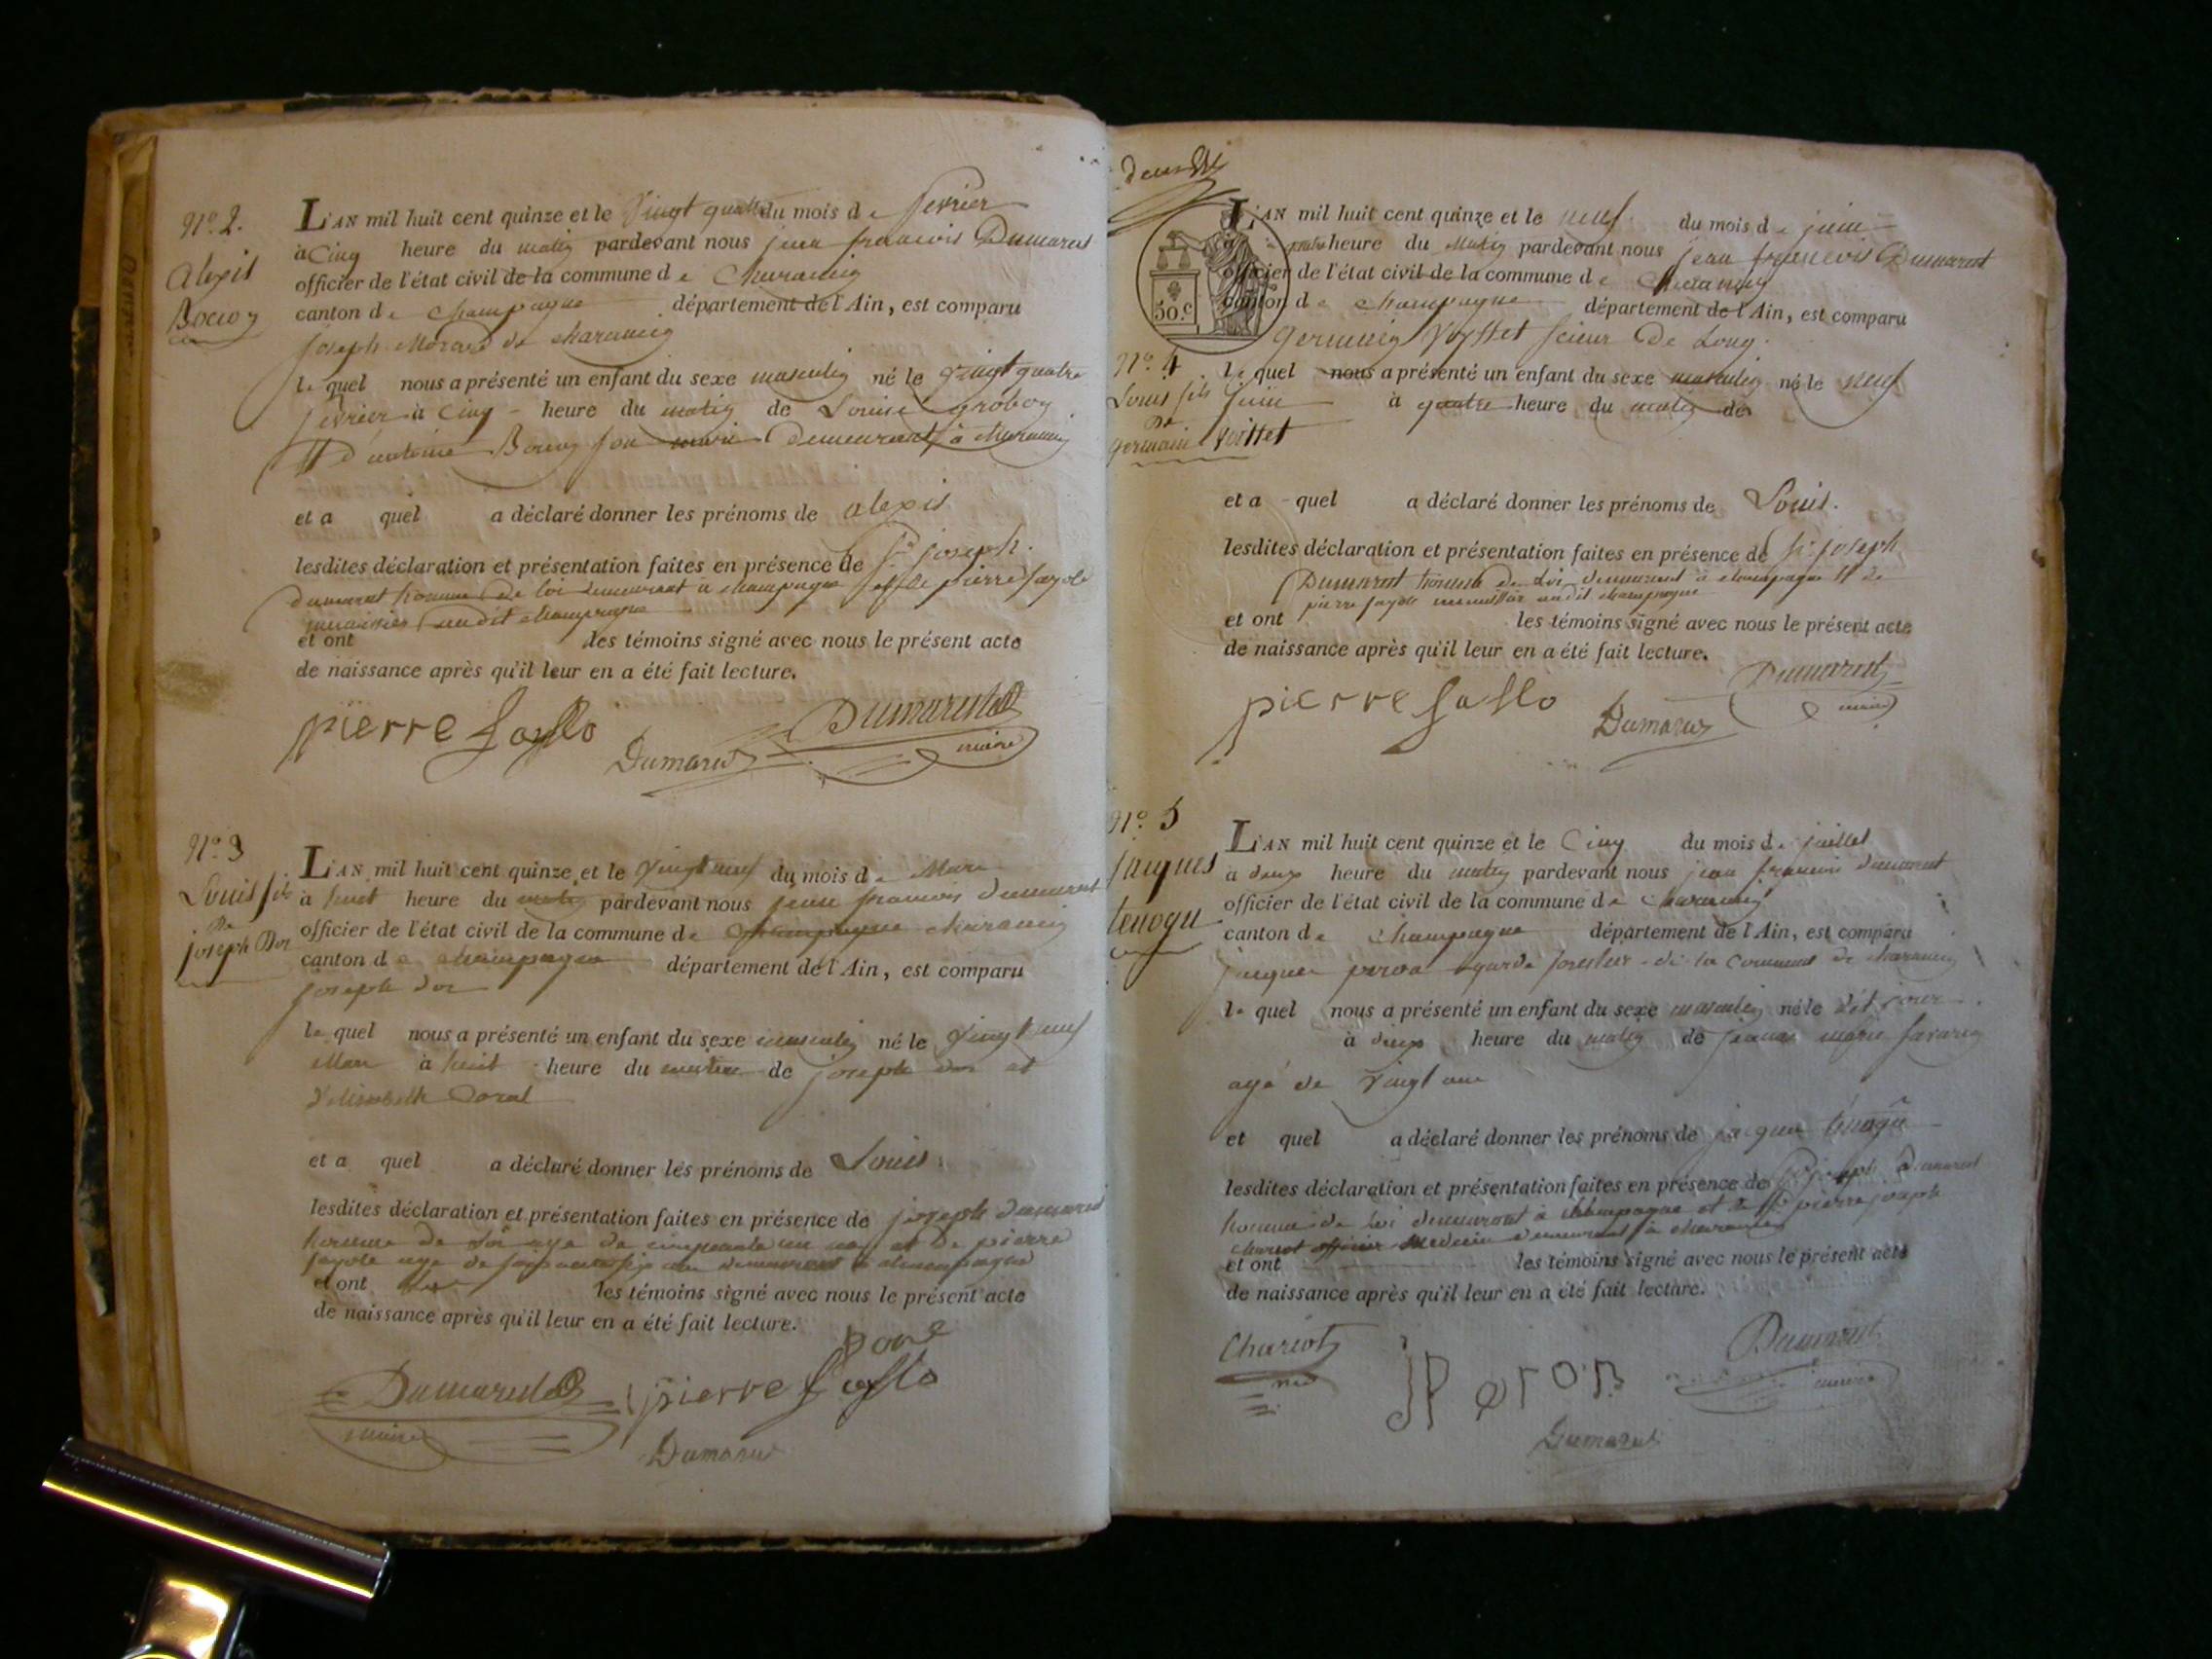 N.° 2.
alexis
L'AN mil huit cent quinze et le Vingt quatre du mois de fevrier
à Cinq heure du matin pardevant nous jean francois Dumarest
officier de l'état civil de la commune de Charancin
canton de Champagne département de l'Ain, est comparu
joseph de charancin
le quel nous a présenté un enfant du sexe masculin né le Vingt quatre
fevrier à Cinq heure du matin de Louise groboz
d'antoine son mari Demeurant à charancin
et a quel a déclaré donner les prénoms de alexis
lesdites déclaration et présentation faites en présence de Sr. joseph
dumarest homme de loi demeurant à champagne et de pierre fayole
audit champagne
et ont les témoins signé avec nous le présent acte
de naissance après qu'il leur en a été fait lecture.
pierre
Dumarest
Dumarest
maire
N.° 3
Louis fils
De
joseph Dor
L'AN mil huit cent quinze et le Vingt neuf du mois de Mars
à huit heure du matin pardevant nous jean francois dumarest
officier de l'état civil de la commune de Champagne charancin
canton de champagne département de l'Ain, est comparu
joseph dor
le quel nous a présenté un enfant du sexe masculin né le Vingt neuf
Mars à huit heure du matin de joseph dor et
d'elisabeth
et a quel a déclaré donner les prénoms de Louis
lesdites déclaration et présentation faites en présence de joseph dumarest
homme de loi age de cinquante un ans et de pierre
fayole age de demeurant à champagne
et ont les témoins signé avec nous le présent acte
de naissance après qu'il leur en a été fait lecture.
Dumarest
pierre
maire
Dumarest
50.c
L'AN mil huit cent quinze et le neuf du mois de juin
à quatre heure du matin pardevant nous jean francois Dumarest
officier de l'état civil de la commune de Charancin
canton de champagne département de l'Ain, est comparu
germain Voyttet scieur De Long.
N.° 4
le quel nous a présenté un enfant du sexe masculin né le neuf
Louis fils
juin à quatre heure du matin de
De
germain Voittet
et a quel a déclaré donner les prénoms de Louis.
lesdites déclaration et présentation faites en présence de Sr. joseph
Dumarest homme de Loi demeurant à champagne et de
pierre fayole audit champagne
et ont les témoins signé avec nous le présent acte
de naissance après qu'il leur en a été fait lecture.
pierre
Dumarest
Dumarest
maire
N.° 5
jacques
L'AN mil huit cent quinze et le Cinq du mois de juillet
à deux heure du matin pardevant nous jean francois dumarest
officier de l'état civil de la commune de charancin
canton de champagne département de l'Ain, est comparu
garde forestier de la commune de charancin
le quel nous a présenté un enfant du sexe masculin né le dit jour
à deux heure du matin de marie
agé de Vingt ans
et quel a déclaré donner les prénoms de jacques
lesdites déclaration et présentation faites en présence de Sr joseph Dumarest
homme de loi demeurant à champagne et de Sr pierre joseph
chariot medecin demeurant à charancin
et ont les témoins signé avec nous le présent acte
de naissance après qu'il leur en a été fait lecture.
Chariot
Dumarest
maire
Dumarest